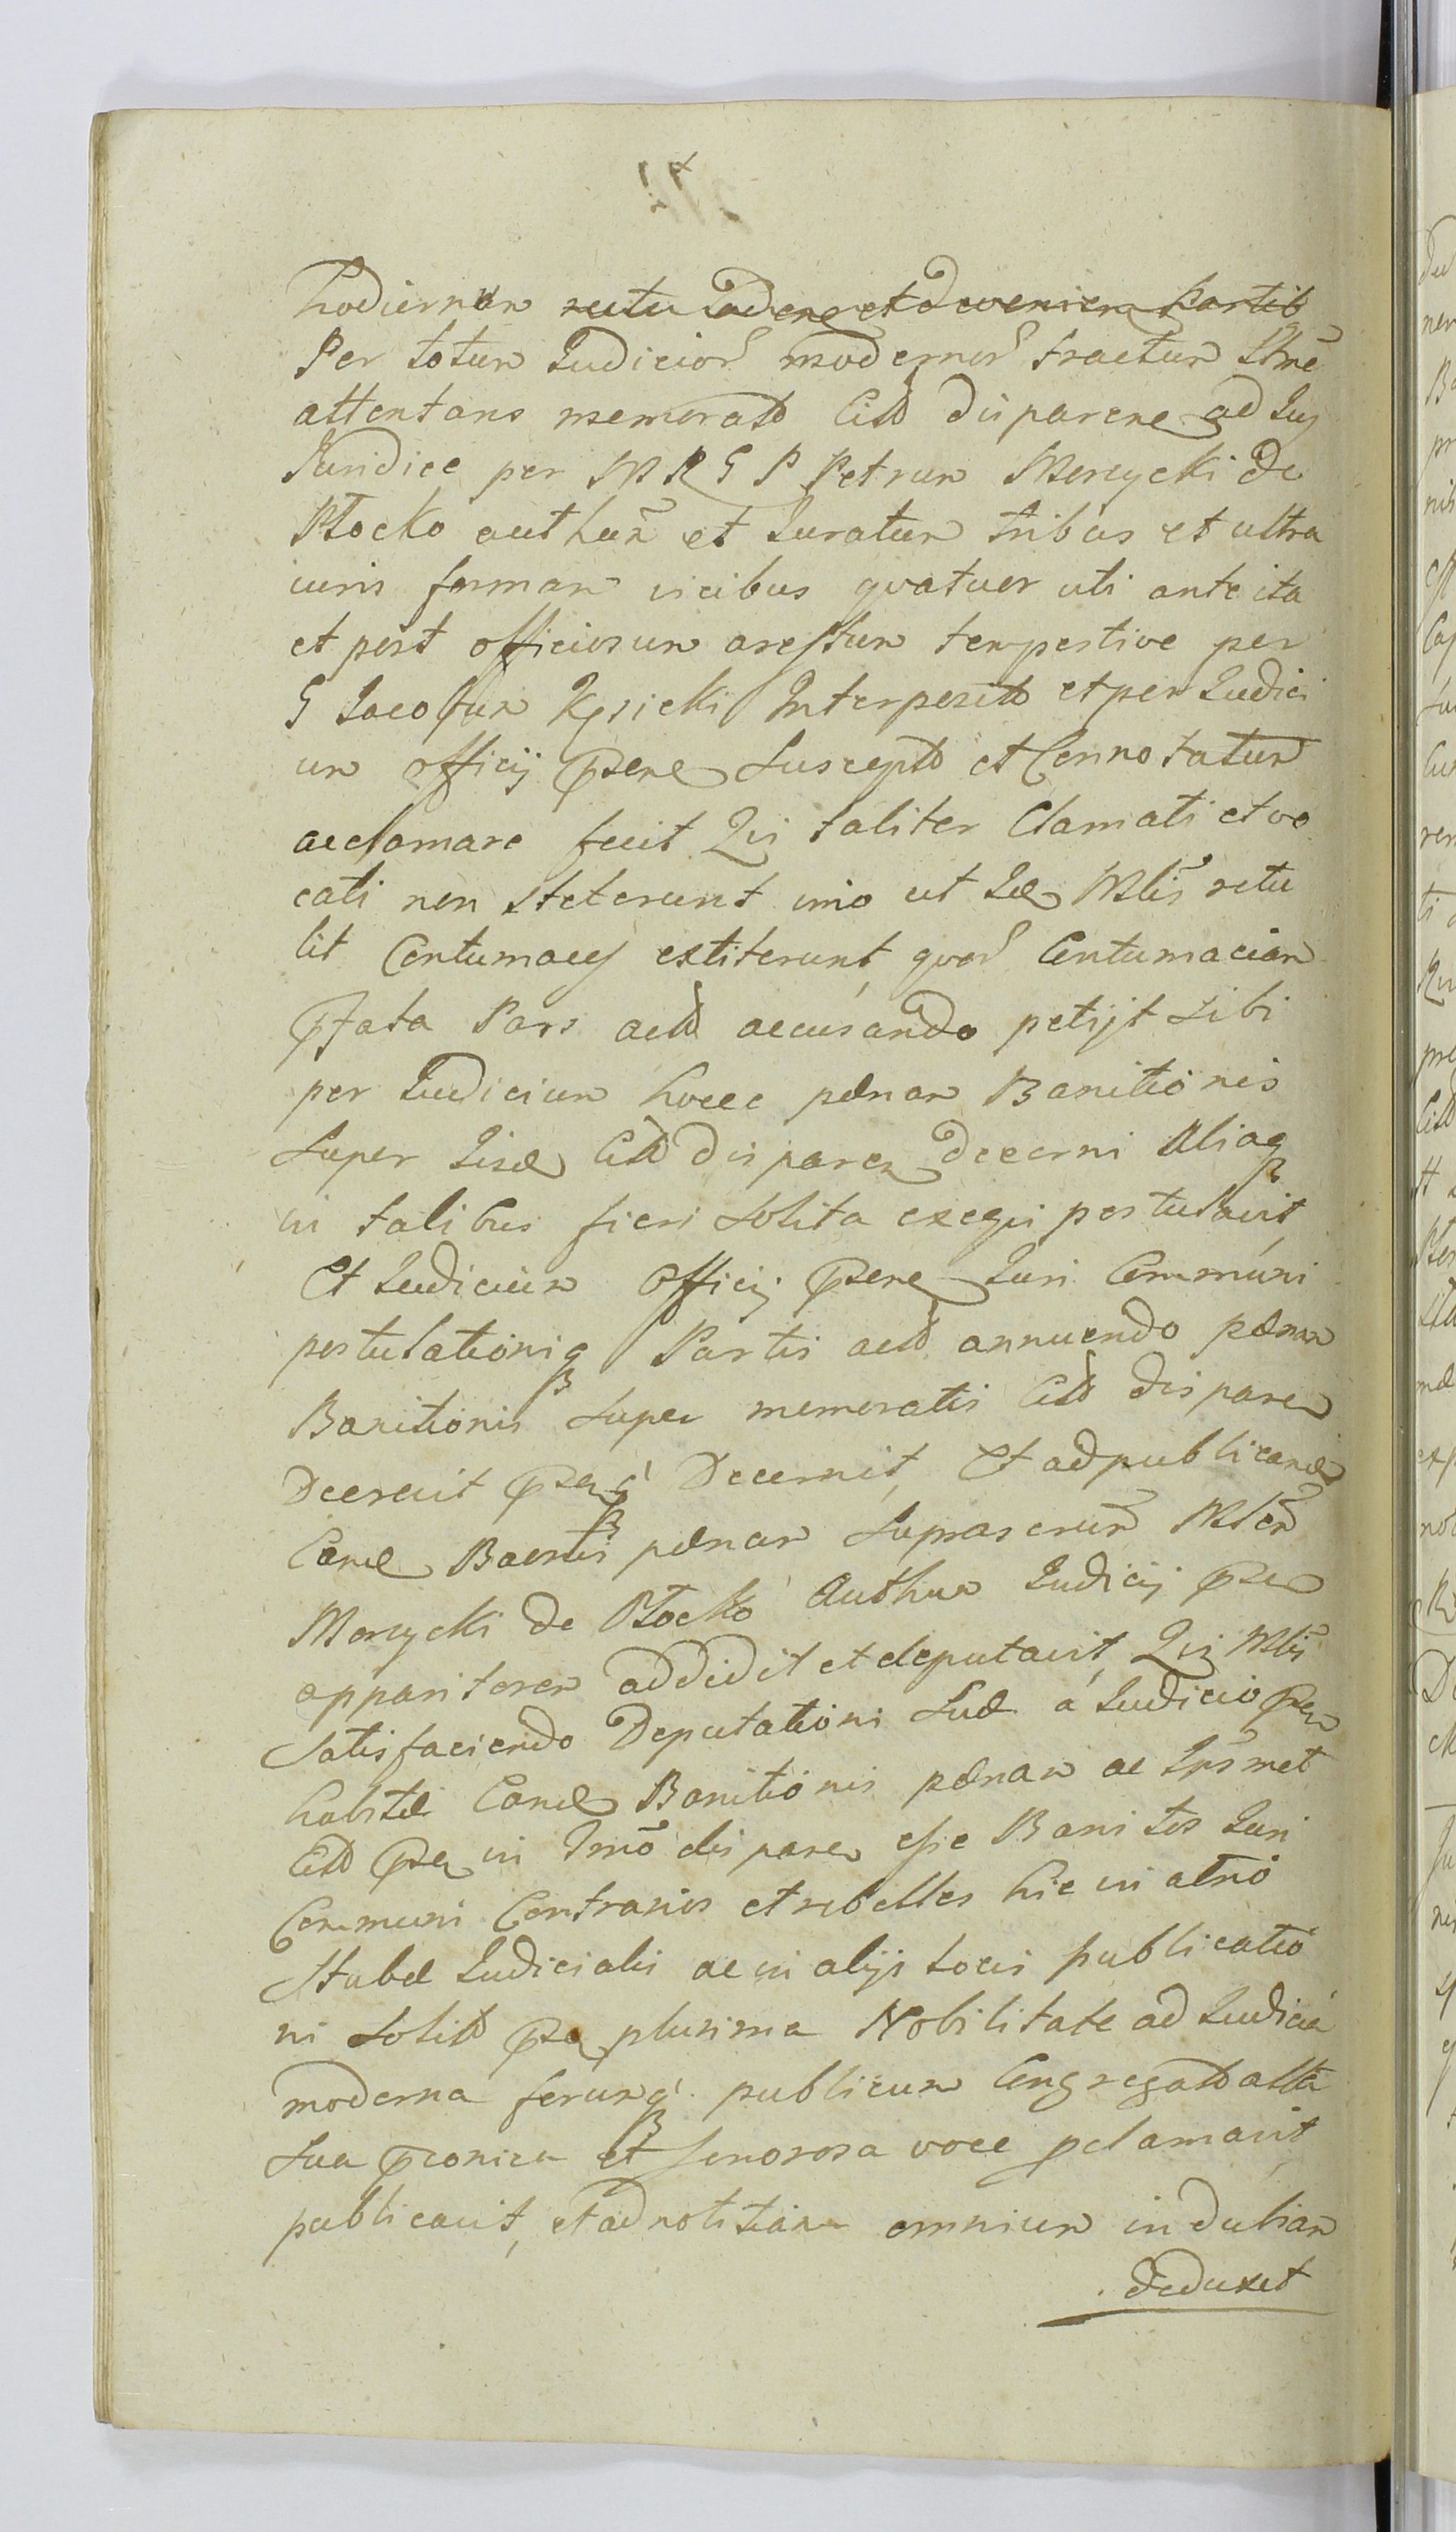 hodiernum
Per totum Judicior modernor tractum
attentans memorato Citto disparene ad Jus
Juridice per M R G P Petrum Moszycki de
Płocko authen et Juratum tribus et ultra
iuris formam vicibus qvatuor uti ante ita
et post officiosum arestum tempestive per
G Jacobum Kęsicki Interposito et per Judici
um officij psene Susceptd et Connotatum
acclamare fecit Qui taliter Clamati et vo
cati non steterunt imo ut Id Mlis retu
lit Contumaces extiterunt, qvor Contumaciam
pfata Pars actd accusando petijt sibi
per Judicium hocce pœnam Banitionis
Super Iisd Citt disparen decerni Aliaq
in talibus fieri solita exeqvi postulavit,
Et Judicium Officij psene Juri Communi
postulationiq Partis actd annuendo pœnam
Banitionis super memoratis Citt disparen
Decrevit psenq Decernit, Et ad publicand
Eand Banitis pœnam suprascrm Mlem
Moszycki de Płocko Authen Judicij psen
apparitorem addidit et deputavit, Qui Mlis
Satisfaciendo Deputationi Suæ á Judicio psen
habitæ Eand Banitionis pœnam ac Ipsmet
Citt psen in Tmo disparen esse Banitos Juri
Communi Contrarios et rebelles hic in atrio
Stubæ Judicialis ac in alijs locis publicatio
ni solitt psen plurima Nobilitate ad Judicia
moderna forumq publicum Congregatt alta
sua et sonorosa voce pclamavit
publicavit, et ad notitiam omnium indubiam
deduxit